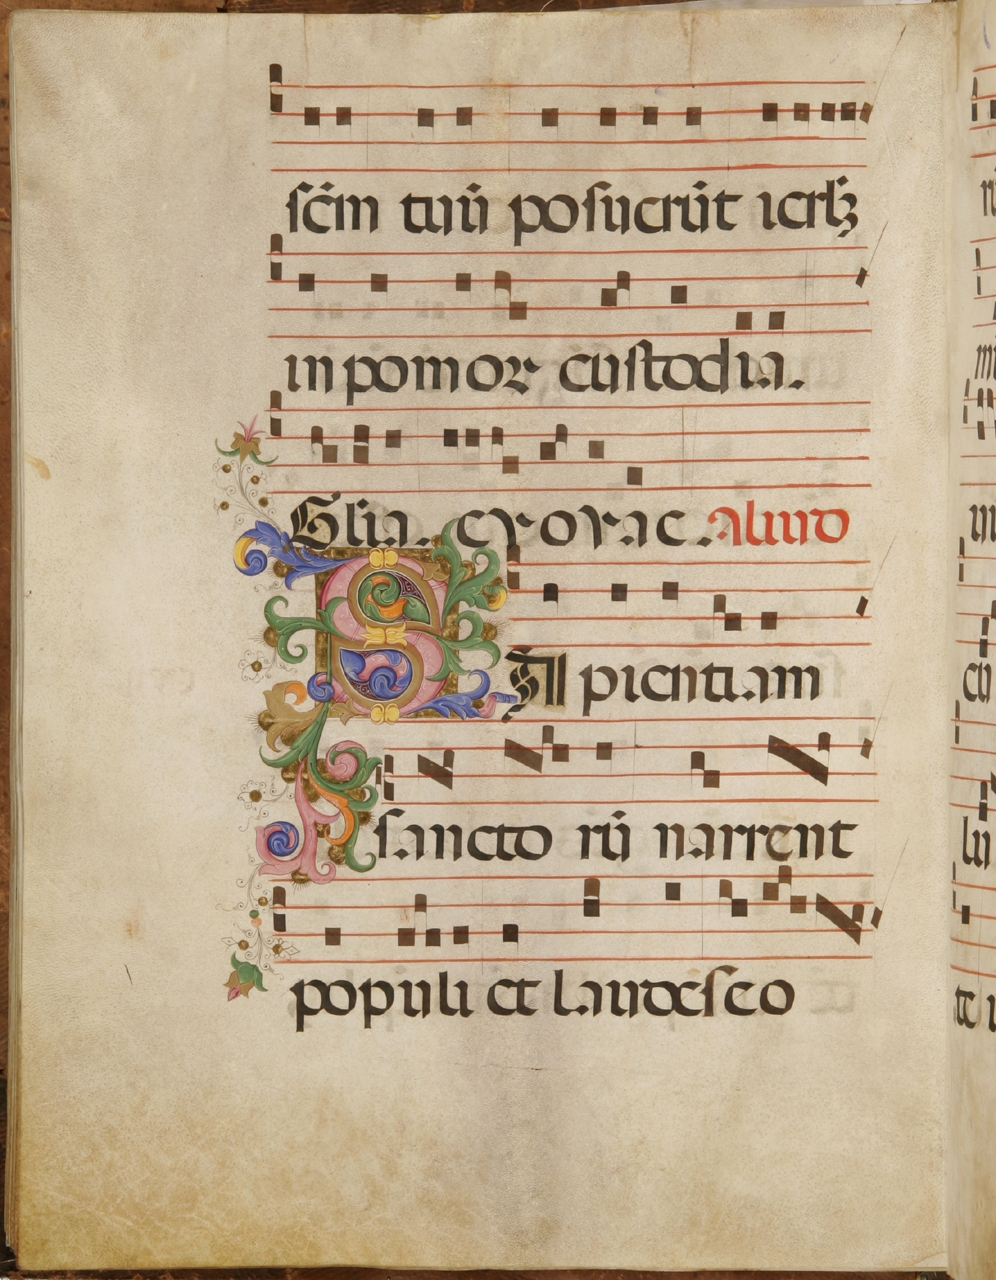 sc̄m tuū posuerūt ierłꝫ
in pomoꝝ custodia.
Glia. evovae. aliud
SApientiam
sancto rū narrent
populi et laudes eo